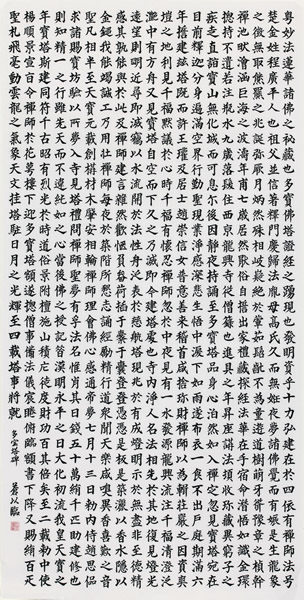 粵妙法蓮華諸佛之秘藏也多寶佛塔證經之踴現也發明資乎十力弘建在於四依有禪師法號
楚金姓程廣平人也祖父並信著釋門慶歸法胤母高氏久而無姙夜夢諸佛覺而有娠是生龍象
之徵無取熊羆之兆誕彌厥月炳然殊相岐嶷絕於葷茹髫齔不為童遊道樹萌牙聳豫章之楨幹
禪池畎澮涵巨海之波濤年甫七歲居然厭俗自誓出家禮藏探經法華在手宿命潛悟如識金環
捴持不遺若注瓶水九歲落髮住西京龍興寺從僧籙也進具之年昇座講法頓收珍藏異窮子之
疾走直詣寶山無化城而可息爾後因靜夜持誦至多寶塔品身心泊然如入禪定忽見寶塔宛在
目前釋迦分身遍滿空界行勤聖現業淨感深悲生悟中淚下如雨遂布衣一食不出戶庭期滿六
年誓建茲塔既而許王瓘及居士趙崇信女普意善來稽首咸捨珍財禪師以為輯莊嚴之因資爽
塏之地利見千福默議于心時千福有懷忍禪師忽於中夜見有一水發源龍興流注千福清澄泛
灩中有方舟又見寶塔自空而下久之乃滅即今建塔處也寺內淨人名法相先於其地復見燈光
遠望則明近尋即滅竊以水流開於法性舟泛表於慈航塔現兆於有成燈明示於無盡非至德精
感其孰能與於此及禪師建言雜然歡愜負畚荷插于橐于囊登登憑憑是板是築灑以香水隱以
金鎚我能竭誠工乃用壯禪師每夜於築階所懇志誦經勵精行道眾聞天樂咸嗅異香喜歎之音
聖凡相半至天寶元載創構材木肇安相輪禪師理會佛心感通帝夢七月十三日勑內侍趙思侃
求諸寶坊驗以所夢入寺見塔禮問禪師聖夢有孚法名惟肖其日賜錢五十萬絹千匹助建修也
則知精一之行雖先天而不違純如之心當後佛之授記昔漢明永平之日大化初流我皇天寶之
年寶塔斯建同符千古昭有烈光於時道俗景附檀施山積庀徒度財功百其倍矣至二載勑中使
楊順景宣旨令禪師於花萼樓下迎多寶塔額遂揔僧事備法儀宸睠俯臨額書下降又賜絹百
聖札飛毫動雲龍之氣象天文挂塔駐日月之光輝至四載塔事將就
多寶塔碑
以臨